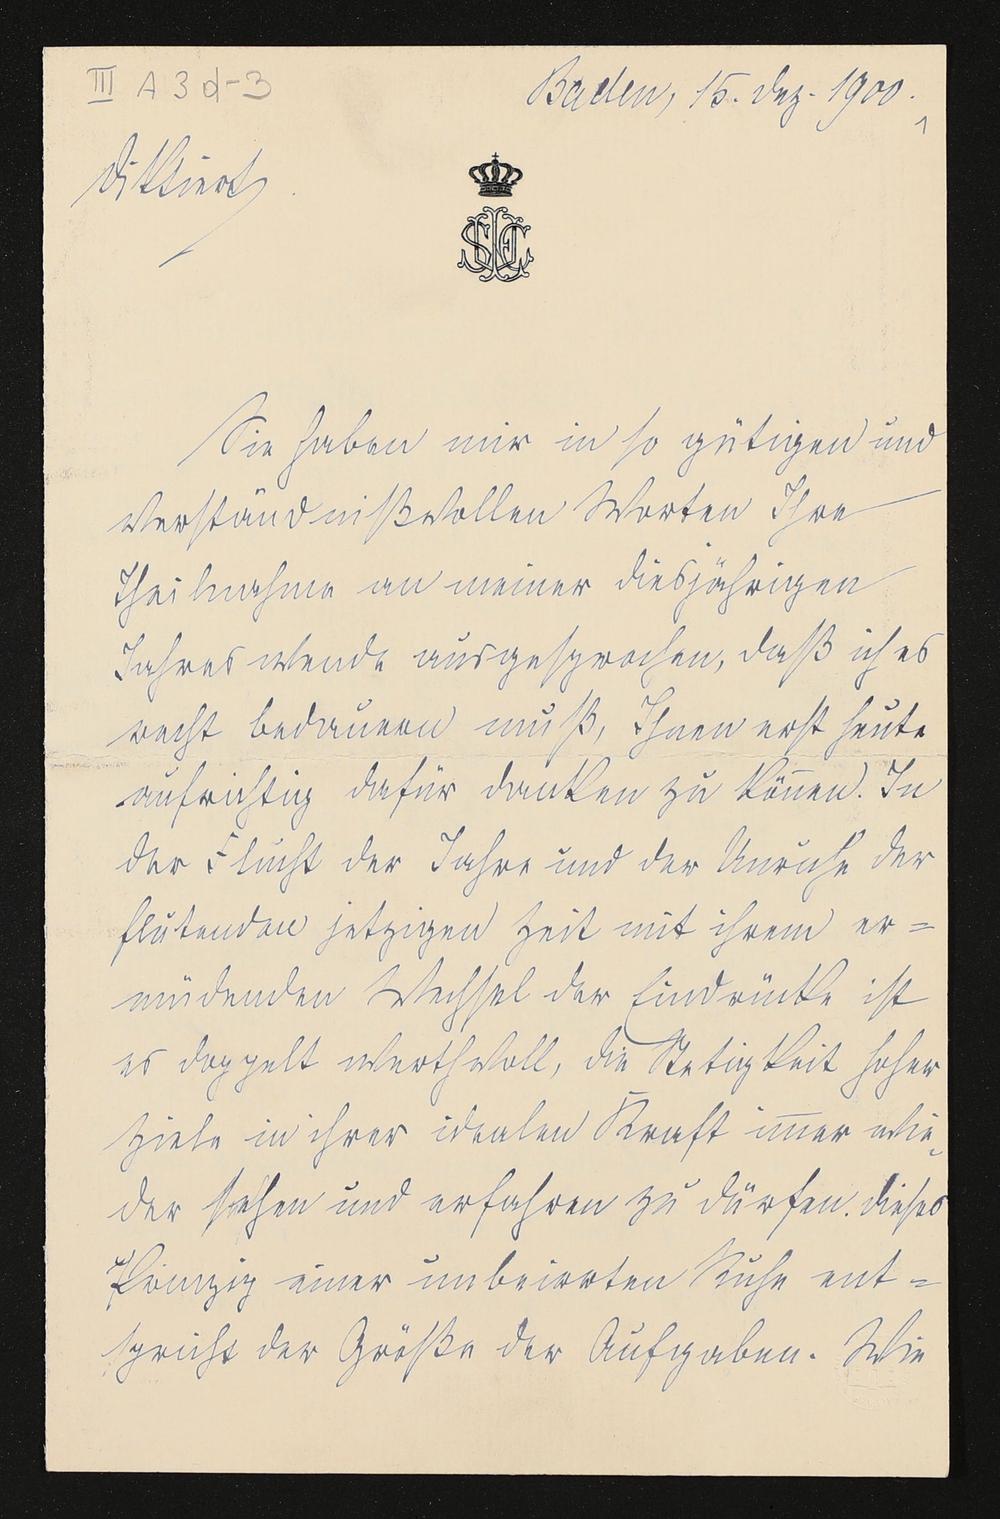 III A 3 d-3
Baden, 15. Dez. 1900.
1
Diktiert.
Sie haben mir in so gütigen und
verständnißvollen Worten Ihre
Theilnahme an meiner diesjährigen
Jahreswende ausgesprochen, daß ich es
recht bedauern muß, Ihnen erst heute
aufrichtig dafür danken zu kön̄en. In
der Flucht der Jahre und der Unruhe der
flutenden jetzigen Zeit mit ihrem er=
müdenden Wechsel der Eindrücke ist
es doppelt werthvoll, die Stetigkeit hoher
Ziele in ihrer idealen Kraft im̄er wie
der sehen und erfahren zu dürfen. Dieses
Prinzip einer unbeirrten Ruhe ent=
spricht der Größe der Aufgaben. Wie